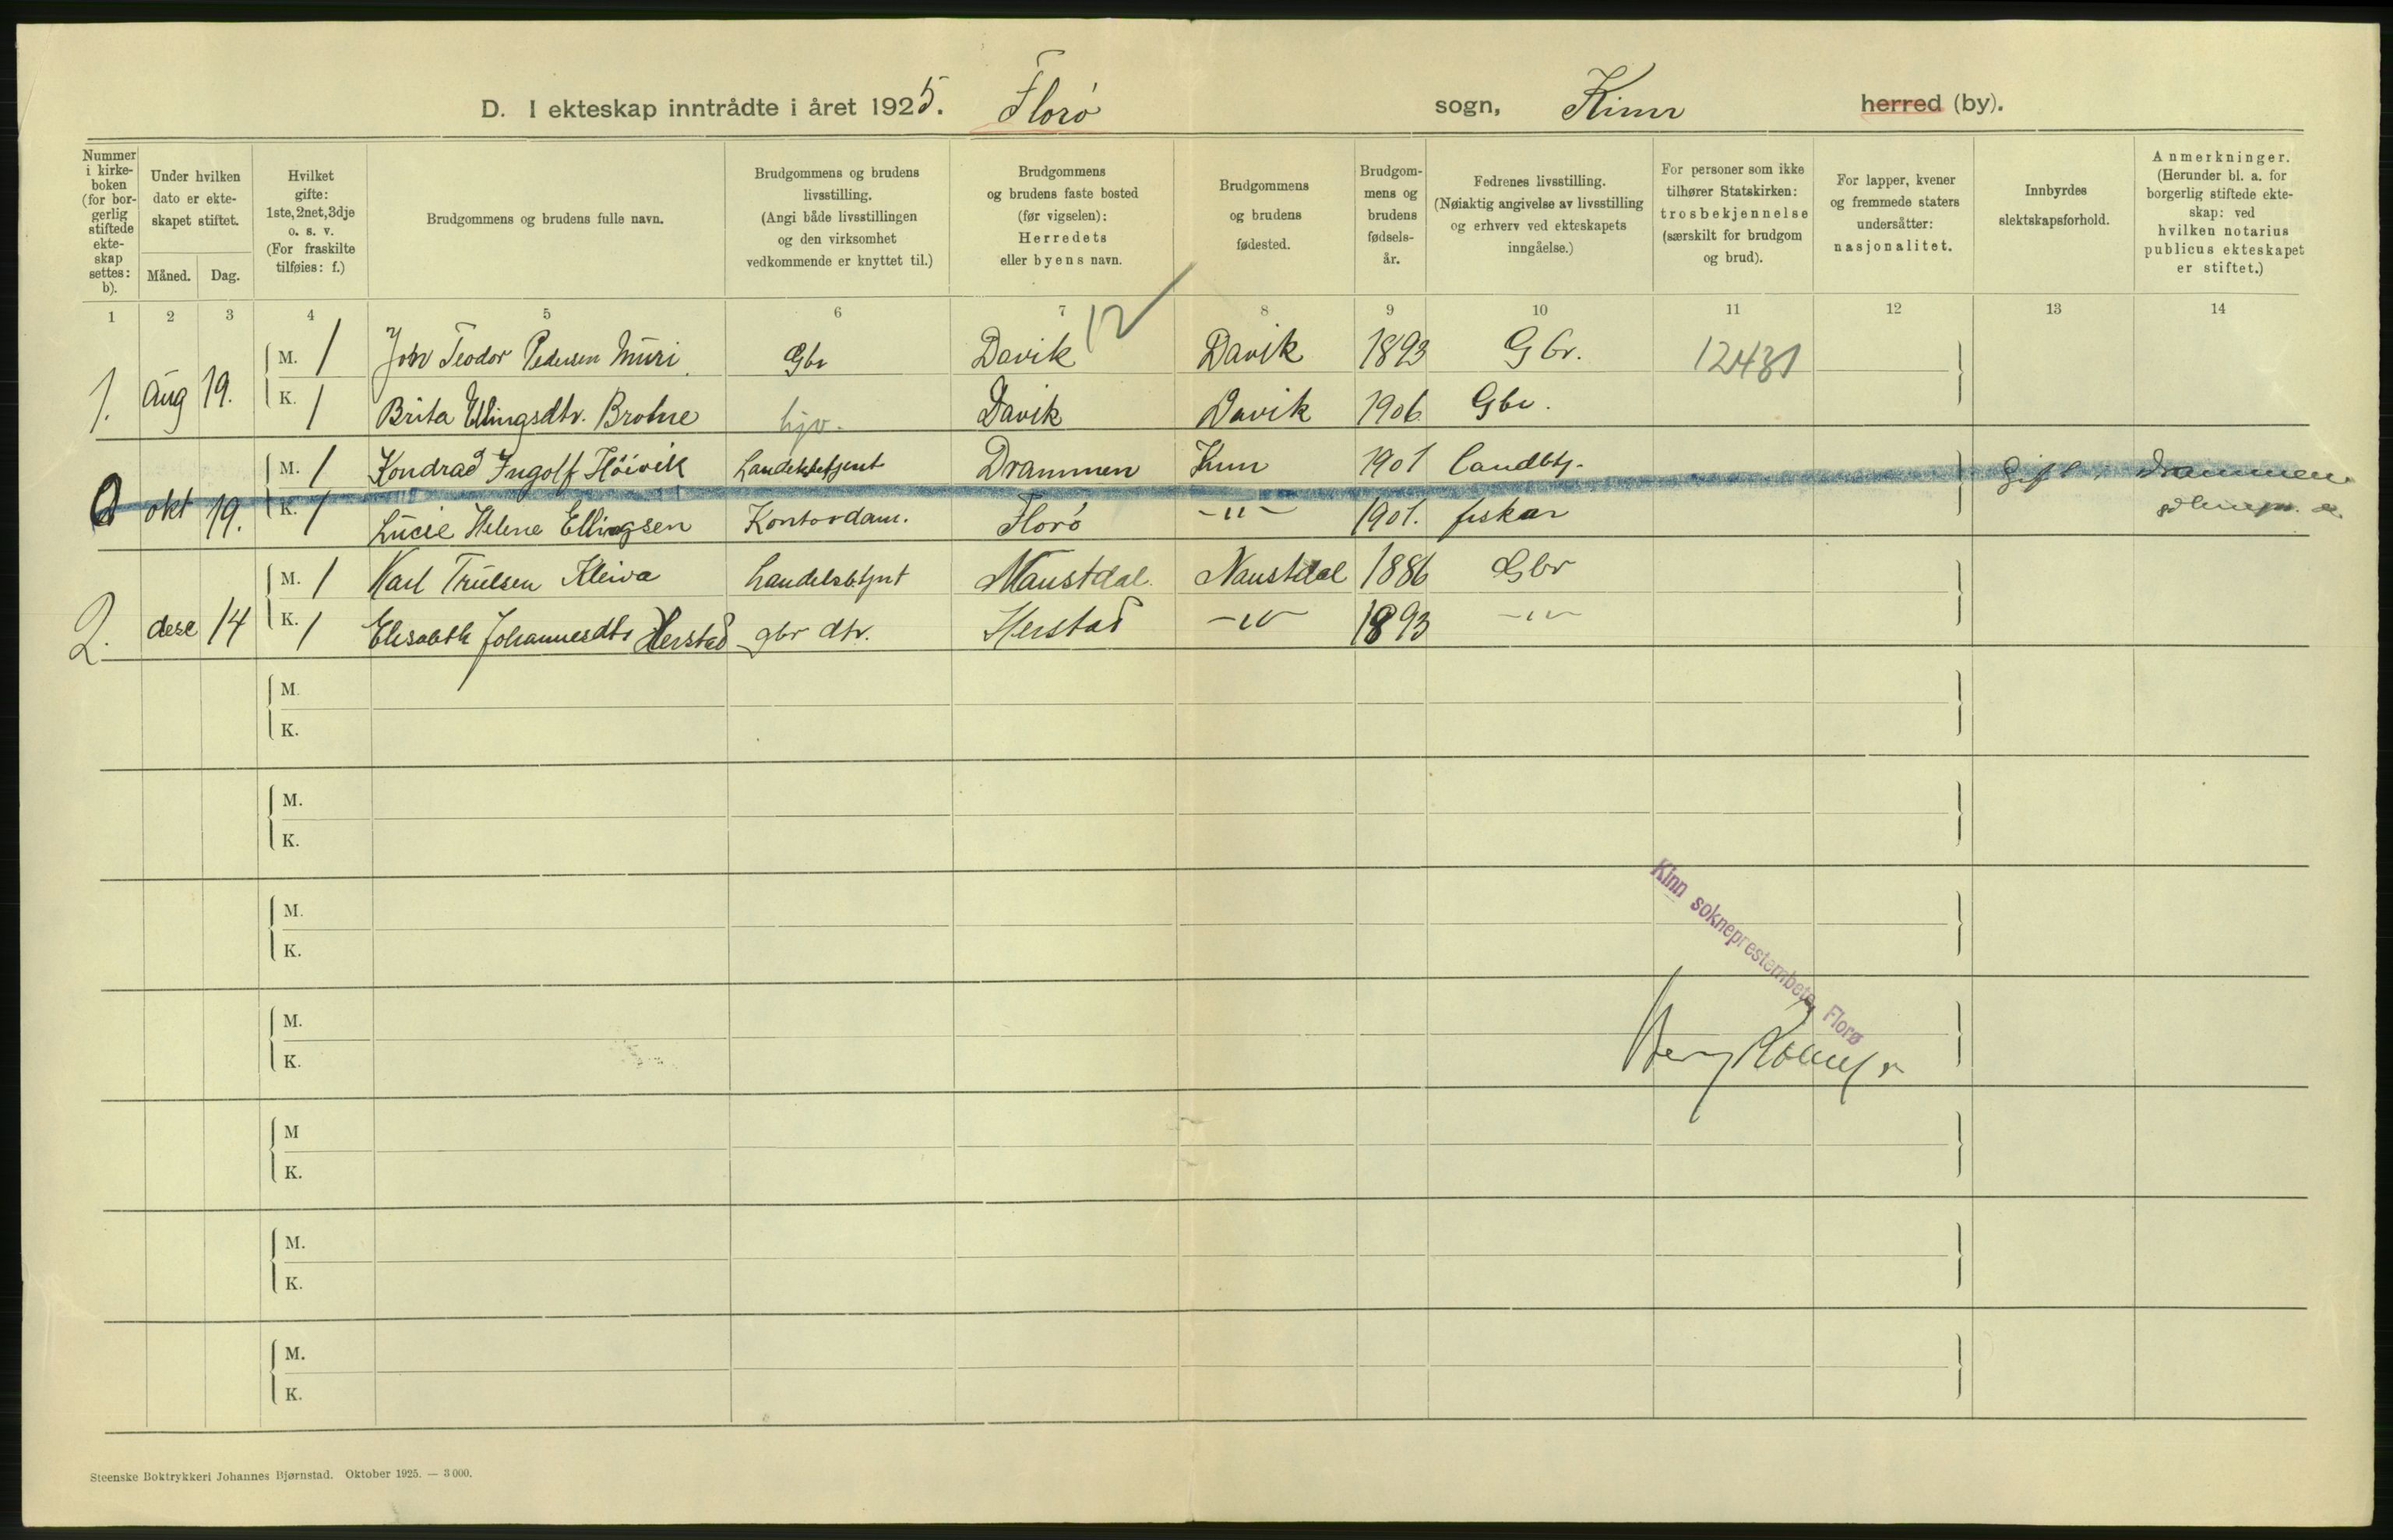 D. I ekteskap inntrådte i året 1925. Florö sogn, Kinn herred (by).
Nummer i kirke- boken (for bor- gerlig stiftede ekte- skap settes: b).
Under hvilken dato er ekte- skapet stiftet.
Måned. Dag.
Hvilket gifte: 1ste, 2net, 3dje o. s. v. (For fraskilte tilføies: f.)
Brudgommens og brudens fulle navn.
Brudgommens og brudens livsstilling. (Angi både livsstillingen og den virksomhet vedkommende er knyttet til.)
Brudgommens og brudens faste bosted (før vigselen): Herredets eller byens navn.
Brudgommens og brudens fødested.
Brudgom- mens og brudens fødsels- år.
Fedrenes livsstilling. (Nøiaktig angivelse av livsstilling og erhverv ved ekteskapets inngåelse.)
For personer som ikke tilhører Statskirken: trosbekjennelse (særskilt for brudgom og brud).
For lapper, kvener og fremmede staters undersåtter: nasjonalitet.
Innbyrdes slektskapsforhold.
Anmerkninger. (Herunder bl. a. for borgerlig stiftede ekte- skap: ved hvilken notarius publicus ekteskapet er stiftet.)
1 2 3 4 5 6 7 8 9 10 11 12 13 14
12
M. 1 Teodor Pedersen Muri Gbr Davik Davik 1893 Gbr. 12431
1. Aug 19. K. 1 Brita Ellingsdtr. Davik Davik 1906 Gbr.
M. 1 Kondrad Ingolf Höivik Handelsbetjent Drammen Kinn 1901 Gift i Drammen
okt 19. K. 1 Lucie Helene Ellingsen Kontordame. Florö -"- 1901. fiskar
M. 1 Karl Trulsen Kleiva handelsbtjnt Naustdal. Naustdal 1886 Gbr
2. dese 14 K. 1 Elisabth Johannesdtr Herstad gbr dtr. Herstad -"- 1893 -"-
M.
K.
M.
K.
M.
K.
Kinn sokneprestembete, Florø
M.
K.
M
K.
M.
K.
M.
K.
Steenske Boktrykkeri Johannes Bjørnstad. Oktober 1925. — 3 000.